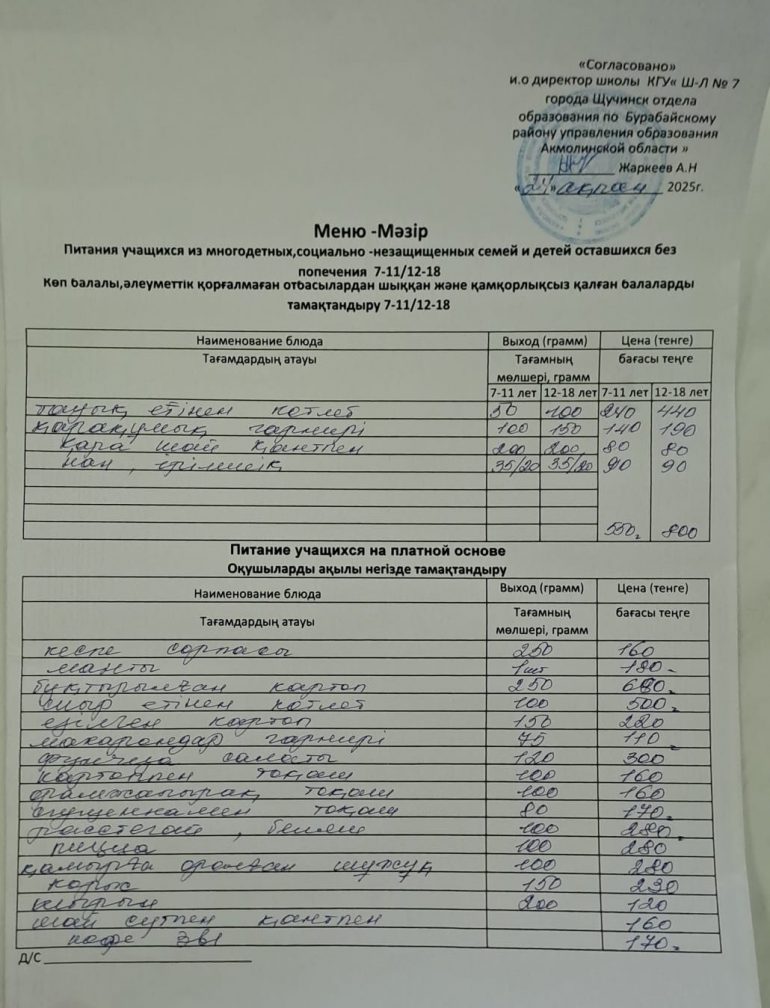 «Согласовано»
и.о директор школы КГУ« Ш-Л № 7
города Щучинск отдела
образования по Бурабайскому
району управления образования
Акмолинской области »
Жаркеев А.Н
«24» ақпан 2025г.
Меню -Мәзір
Питания учащихся из многодетных,социально -незащищенных семей и детей оставшихся без
попечения 7-11/12-18
Көп балалы,әлеуметтік қорғалмаған отбасылардан шыққан және қамқорлықсыз қалған балаларды
тамақтандыру 7-11/12-18
Наименование блюда Выход (грамм) Цена (тенге)
Тағамдардың атауы Тағамның бағасы теңге
мөлшері, грамм
7-11 лет 12-18 лет 7-11 лет 12-18 лет
тауық етінен котлет 50 100 240 440
қарақұмық гарнирі 100 150 140 190
қара шай қантпен 200 200 80 80
нан, ірімшік 35/20 35/20 90 90
550 800
Питание учащихся на платной основе
Оқушыларды ақылы негізде тамақтандыру
Наименование блюда Выход (грамм) Цена (тенге)
Тағамдардың атауы Тағамның бағасы теңге
мөлшері, грамм
кеспе сорпасы 250 160
манты 1шт 180
бұқтырылған картоп 250
сиыр етінен котлет 100 500
езілген картоп 150 220
макарондар гарнирі 75 110
фунчоза салаты 120 300
картоппен тоқаш 100 160
орамжапырақ тоқаш 100 160
сгущенкамен тоқаш 80 170
расстегай, беляш 100 280
пицца 100 280
қамырға оралған шұжық 100 280
150 230
шырын 200 120
шай сүтпен қантпен 160
кофе 3в1 170
Д/С